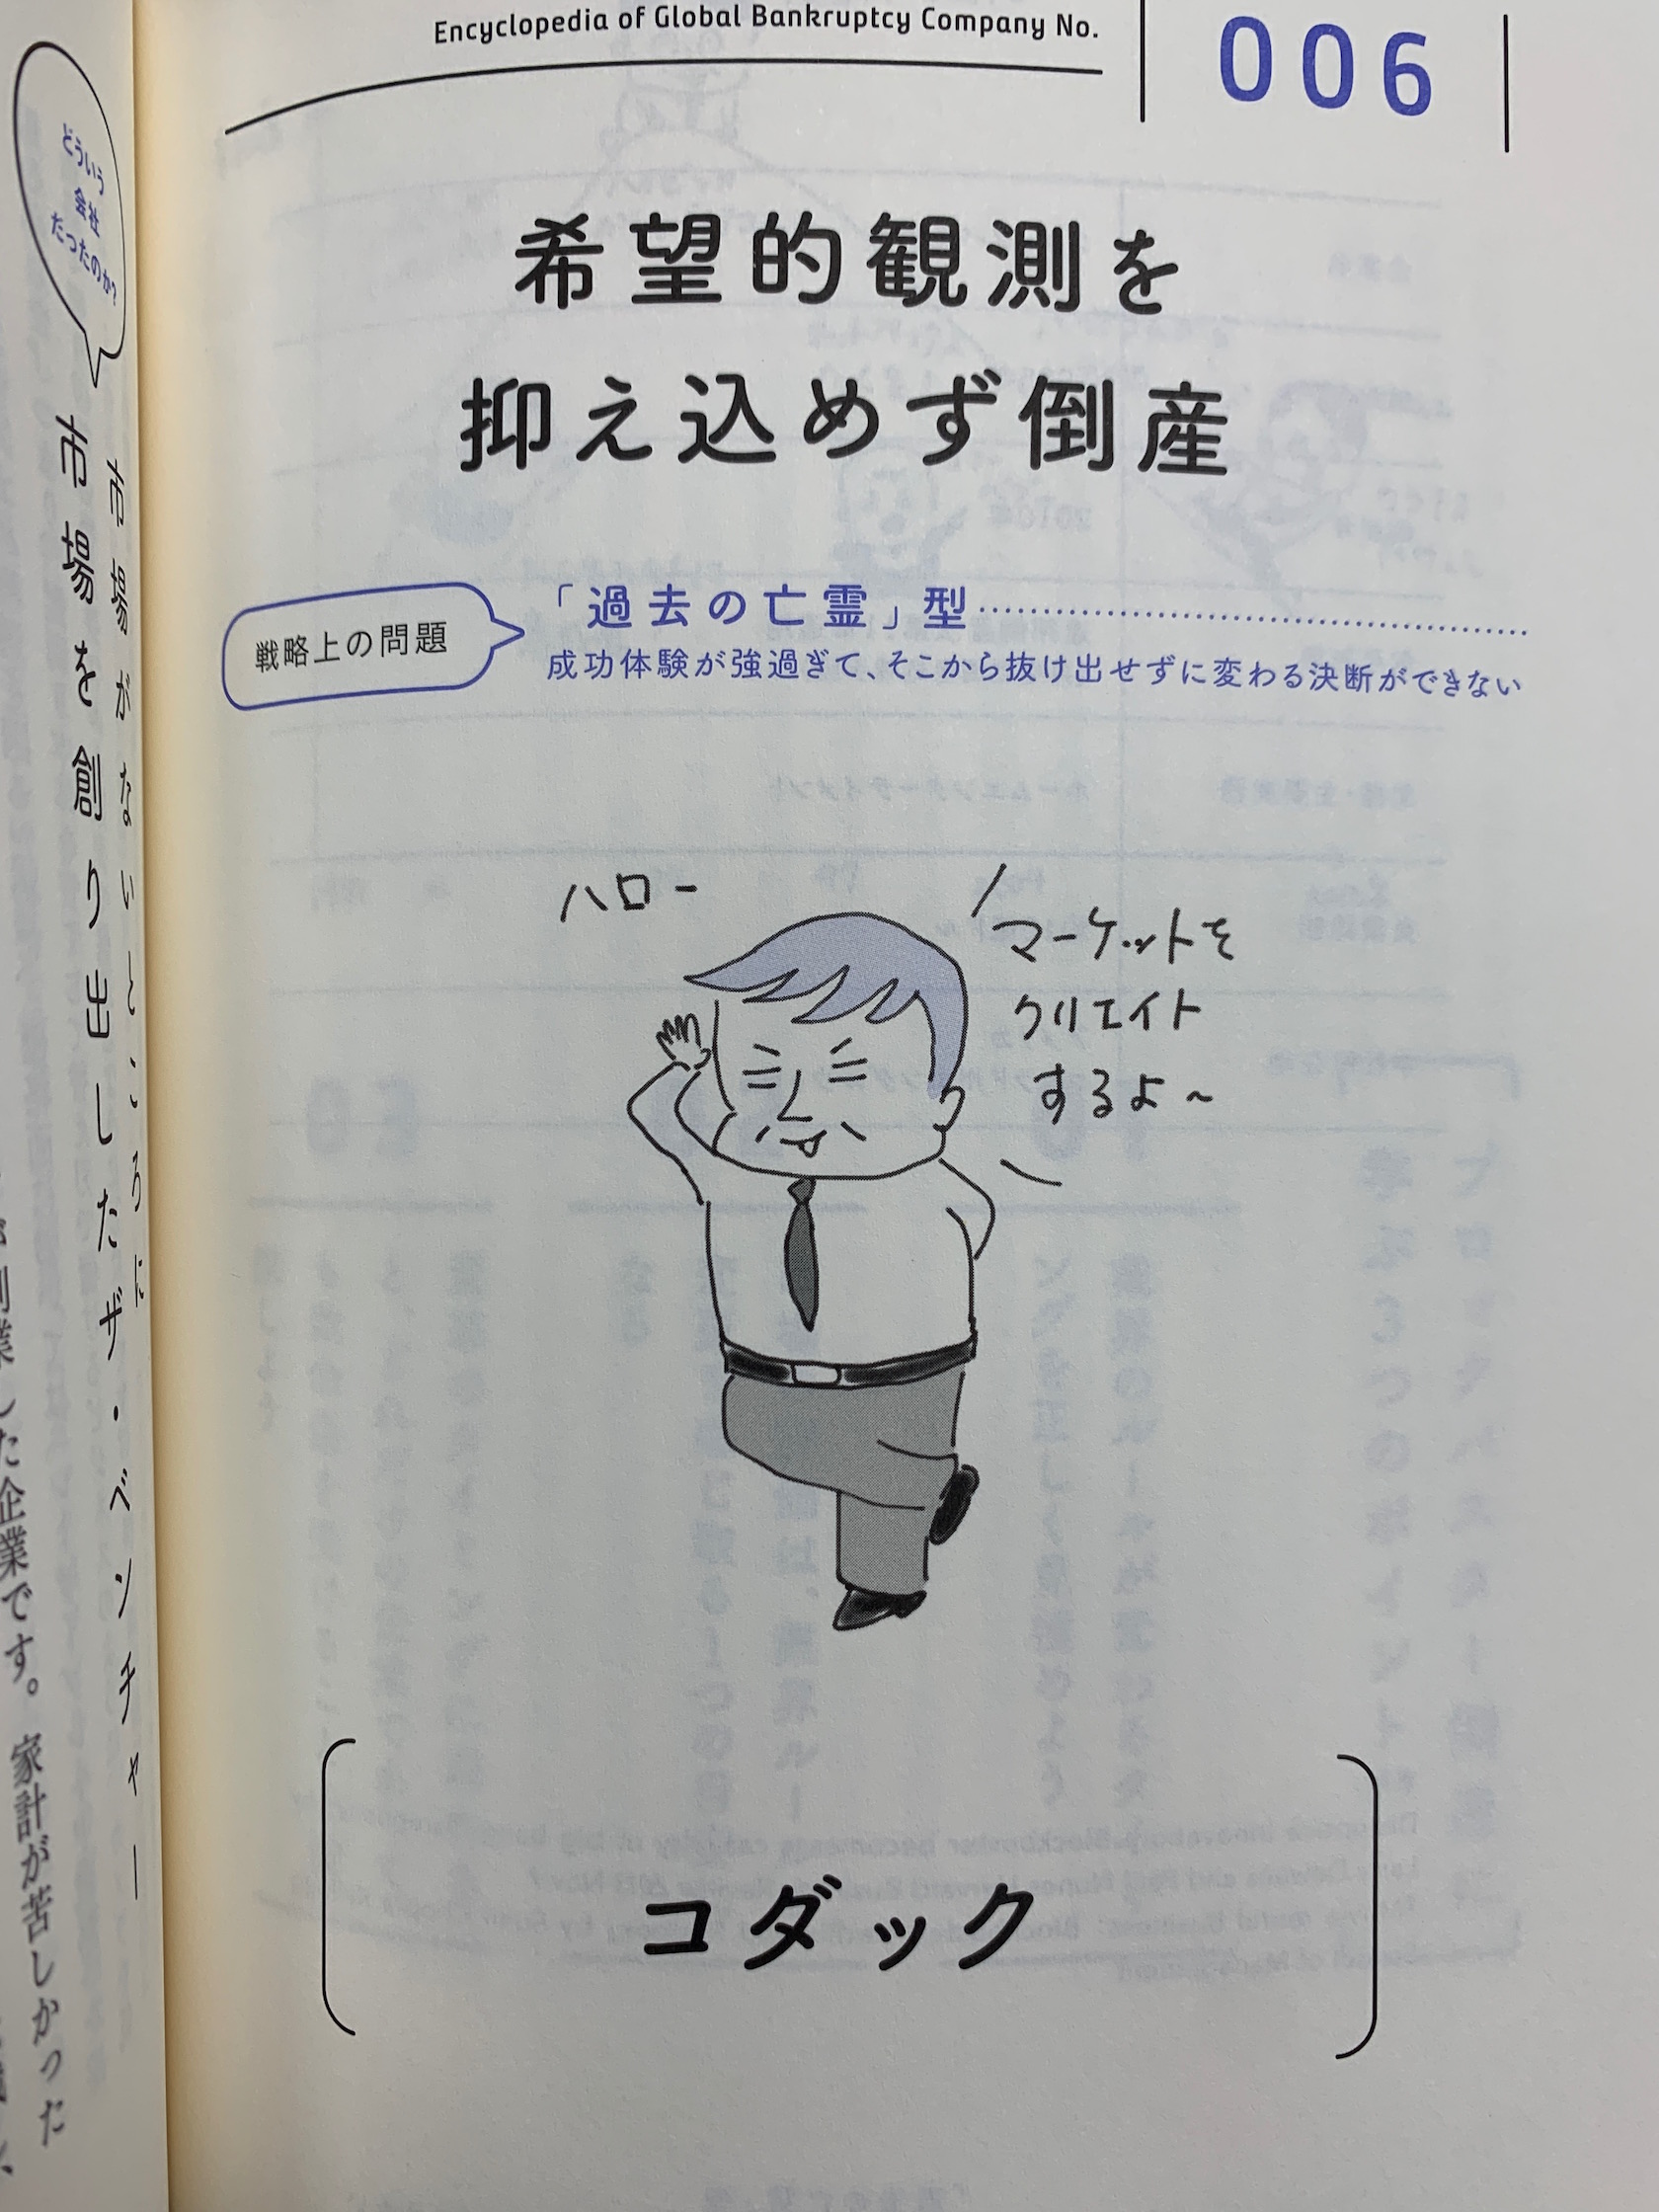 Encyclopedia of Global Bankruptcy Company No.
006
希望的観測を
抑え込めず倒産
戦略上の問題
「過去の亡霊」型
成功体験が強過ぎて、そこから抜け出せずに変わる決断ができない
ハロー
マーケットを
クリエイト
するよ~
コダック
どういう
会社
だったのか?
市場がないところに
市場を創り出したザ・ベンチャー
した企業です。家計が苦しかった